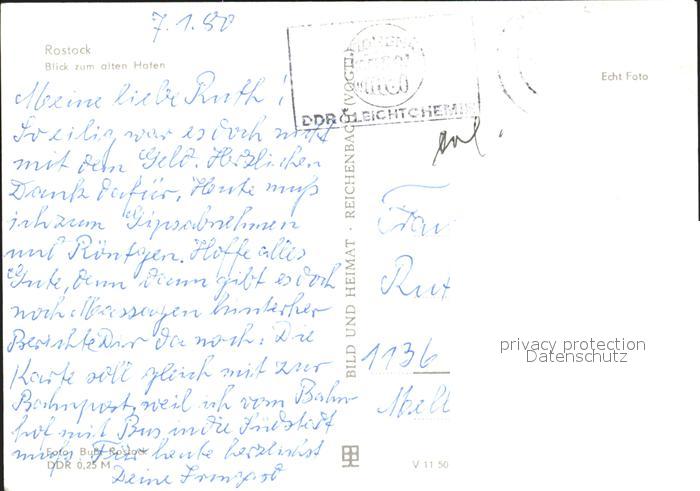 7.1.80
Rostock
Blick zum alten Hafen
Echt Foto
Meine liebe Ruth!
So eilig war es doch nicht
mit dem Geld. Herzlichen
Dank dafür. Heute muß
ich zum Gipsabnehmen
und Röntgen. Hoffe alles
Gute, denn dann gibt es doch
noch Massagen hinterher
Berichte Dir da noch. Die
Karte soll gleich mit zur
Bahnpost, weil ich vom Bahn-
hof mit Bus in die Südstadt
muß. Für heute herzlichst
Deine
Foto: Buth Rostock
DDR 0,25 M
BILD UND HEIMAT · REICHENBACH (VOGTL
DDR LEICHTCHEMIE
Frau
Rut
1136
V 11 50
privacy protection
Datenschutz